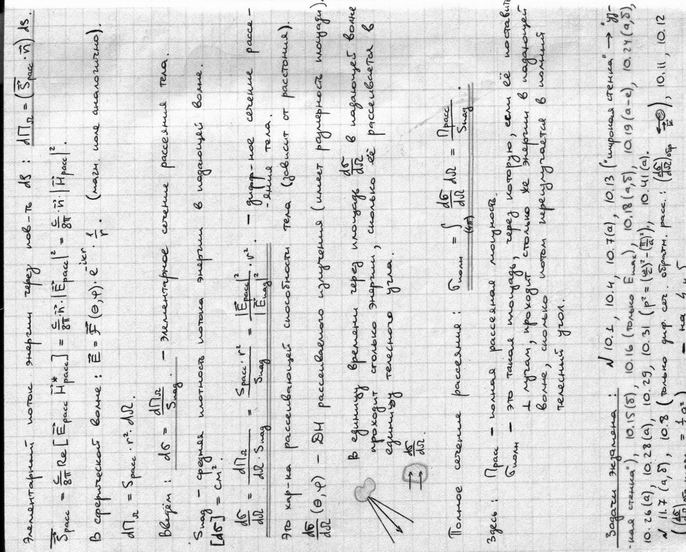 Элементарный поток энергии через пов-ть dS : dΠ_Ω = (S⃗расс · n⃗) dS.
S⃗расс = c/8π Re[E⃗расс H⃗*расс] = c/8π · n⃗ · |E⃗расс|² = c/8π · n⃗ · |H⃗расс|².
В сферической волне : E⃗ = F⃗(θ,φ) · e^{ikr} · 1/r . (магн. поле аналогично).
dΠ_Ω = Sрасс · r² · dΩ.
Введём : dσ = dΠ_Ω / Sпад . — элементарное сечение рассеяния тела.
Sпад — средняя плотность потока энергии в падающей волне.
[dσ] = см².
dσ/dΩ = dΠ_Ω / dΩ Sпад = Sрасс · r² / Sпад = |E⃗расс|² / |E⃗пад|² · r² . — дифф-ное сечение рассе-
-яния тела.
Это хар-ка рассеивающей способности тела (зависит от расстояния).
dσ/dΩ (θ,φ) — ДН рассеиваемого излучения (имеет размерность площади).
В единицу времени через площадь dσ/dΩ в падающей волне
проходит столько энергии, сколько её рассеивается в
единицу телесного угла.
dσ/dΩ .
Полное сечение рассеяния : σполн = ∫(4π) dσ/dΩ dΩ = Πрасс / Sпад .
Здесь : Πрасс — полная рассеянная мощность.
σполн — это такая площадь, через которую, если её поставить
⊥ лучам, проходит столько же энергии в падающей
волне, сколько потом переизлучается в полный
телесный угол.
Задачи экзамена : № 10.1, 10.4, 10.7(а), 10.13 ("широкая стенка" →
-кая стенка"), 10.15(б), 10.16 (только Emax), 10.18(а,б), 10.19(а-е), 10.24(а,б),
10.26(а), 10.28(а), 10.29, 10.31 , 10.41(а).
№ 11.7(а,б), 10.8 (только диф. сеч. обратн. расс.: (dσ/dΩ)обр ), 10.11, 10.12
— на 4 и 5